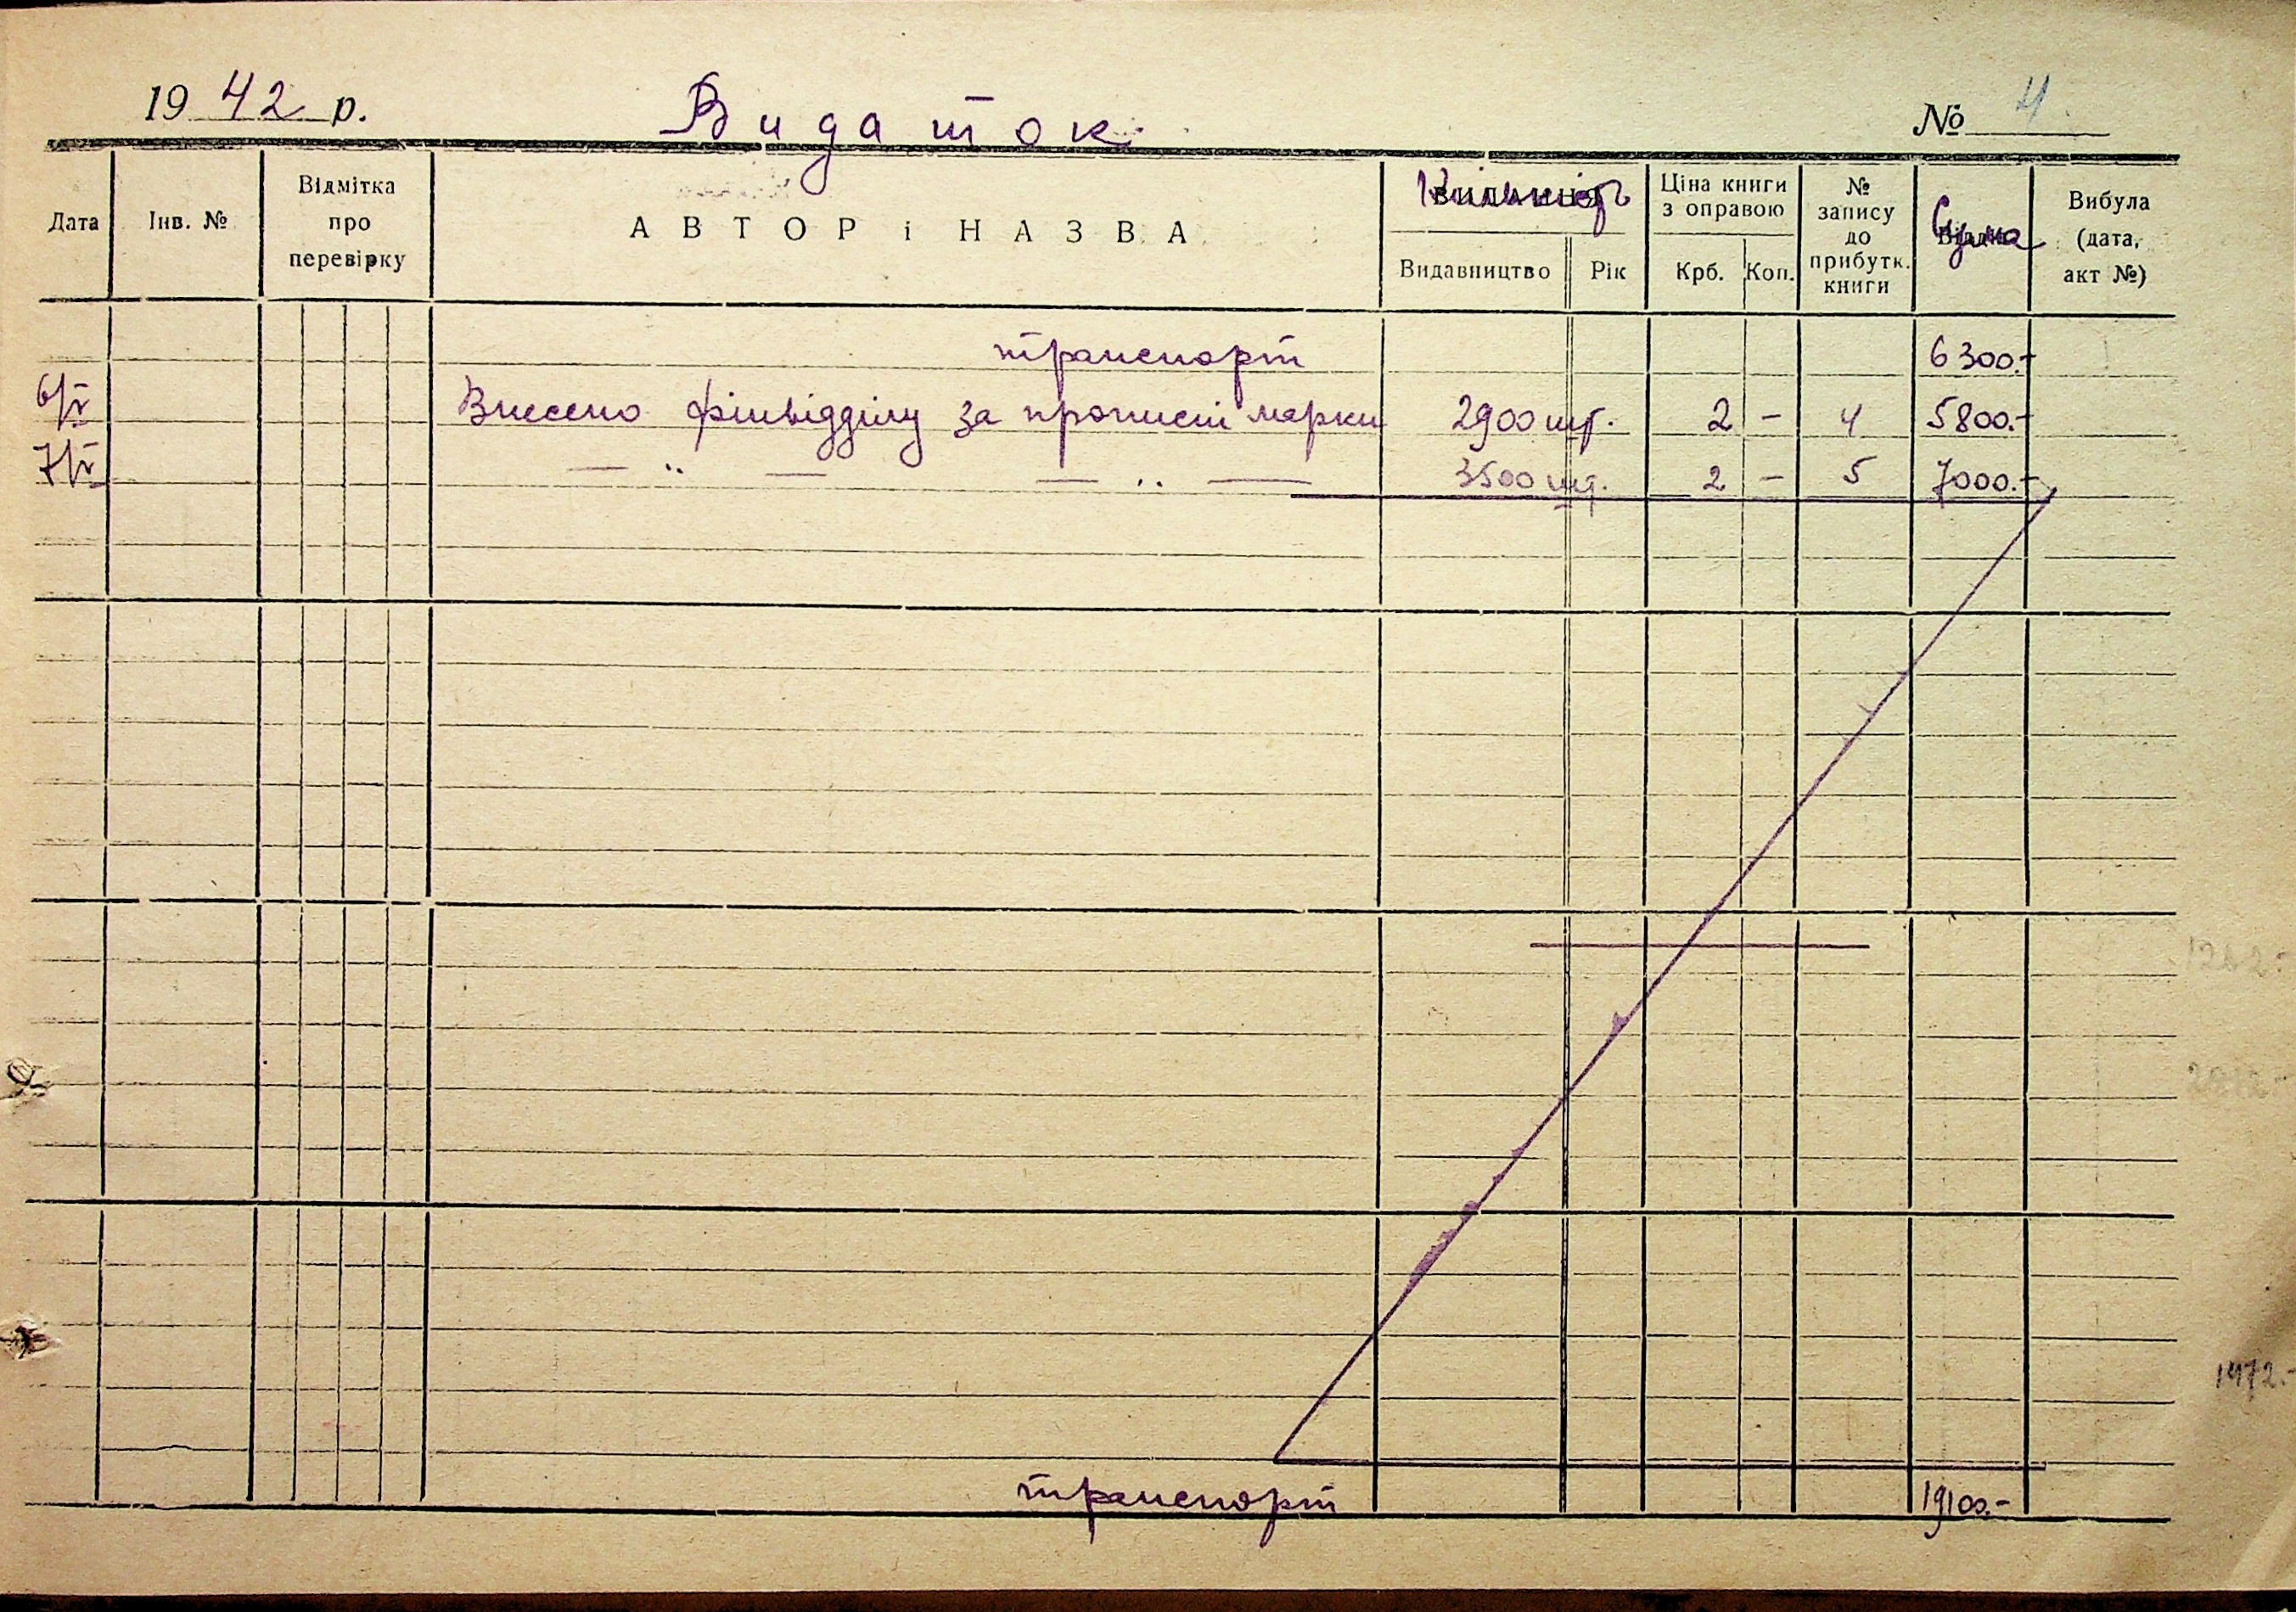 1942 р. Видаток № 4
Дата
Інв. №
Відмітка
про
перевірку
АВТОР і НАЗВА
Кількість
Видавництво
Рік
Ціна книги
з оправою
Крб.
Коп.
№
запису
до
прибутк.
книги
Сума
Вибула
(дата,
акт №)
транспорт 6300.-
6/V Внесено фінвідділу за прописні марки 2900 шт. 2 - 4 5800.-
7/V — " — — " — 3500 шт. 2 - 5 7000.-
транспорт 19100.-